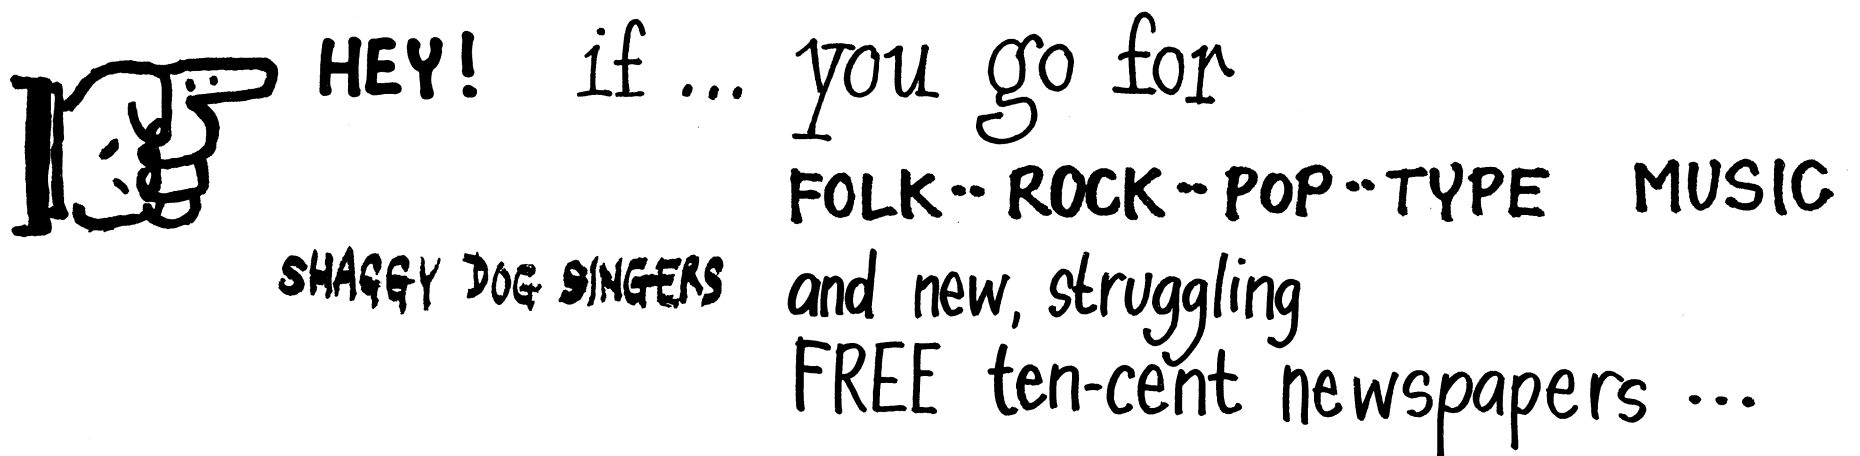 HEY! if ... you go for
FOLK -- ROCK -- POP -- TYPE MUSIC
SHAGGY DOG SINGERS and new, struggling
FREE ten-cent newspapers ...